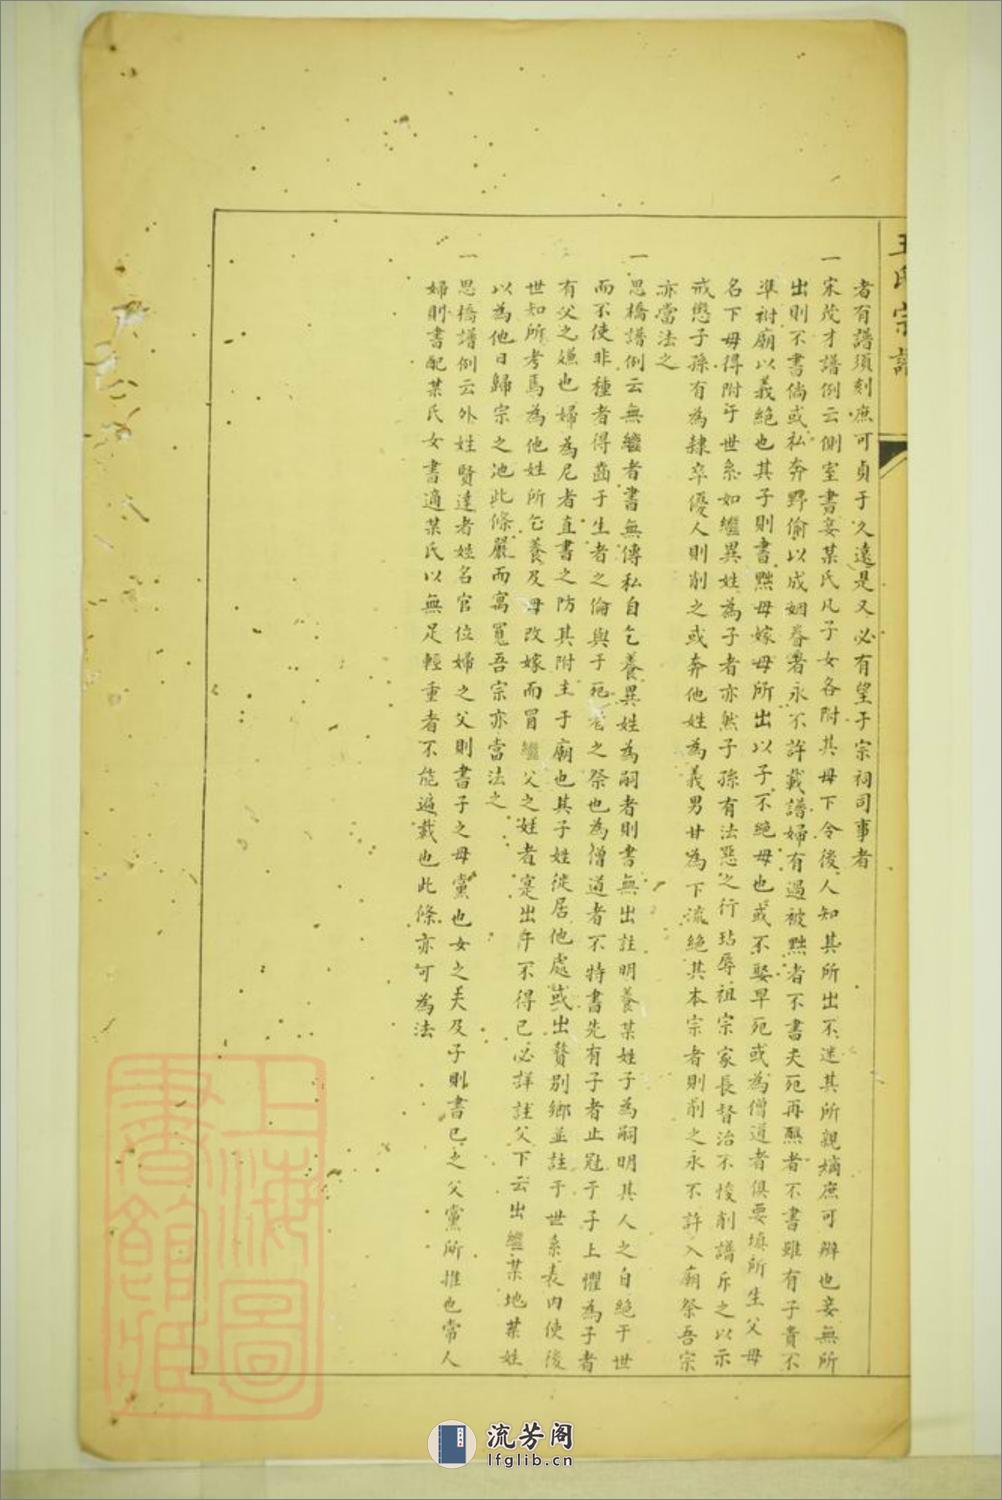 王氏宗譜
者有譜須刻庶可貞于久遠是又必有望于宗祠司事者
一宋茂才譜例云側室書妾某氏凡子女各附其母下令後人知其所出不迷其所親嫡庶可辨也妾無所
出則不書倘或私奔野偷以成姻眷者永不許載譜婦有過被黜者不書夫死再醮者不書雖有子貴不
準祔廟以義絕也其子則書黜母嫁母所出以子不絕母也或不娶早死或為僧道者俱要填所生父母
名下毋得附于世系如繼異姓為子者亦然子孫有法惡之行玷辱祖宗家長督治不悛削譜斥之以示
戒懲子孫有為隸卒優人則削之或奔他姓為義男甘為下流絕其本宗者則削之永不許入廟祭吾宗
亦當法之
一思橋譜例云無繼者書無傳私自乞養異姓為嗣者則書無出註明養某姓子為嗣明其人之自絕于世
而不使非種者得齒于生者之倫與于死者之祭也為僧道者不特書先有子者止冠于子上懼為子者
有父之嫌也婦為尼者直書之防其附主于廟也其子姓徙居他處或出贅別鄉並註于世系表內使後
世知所考焉為他姓所乞養及母改嫁而冒繼父之姓者寔出于不得已必詳註父下云出繼某地某姓
以為他日歸宗之地此條嚴而寓寬吾宗亦當法之
一思橋譜例云外姓賢達者姓名官位婦之父則書子之母黨也女之夫及子則書已之父黨所推也常人
婦則書配某氏女書適某氏以無足輕重者不能遍載也此條亦可為法
上海圖書館藏
流芳阁
lfglib.cn